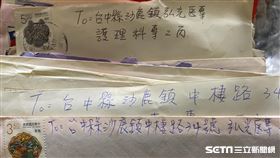 5
To=台中縣沙鹿鎮弘光醫專
護理科專一丙
To=台中縣沙鹿鎮中棲路34
3
To=台中縣沙鹿鎮中棲路34號 弘光醫專
SETN三立新聞網